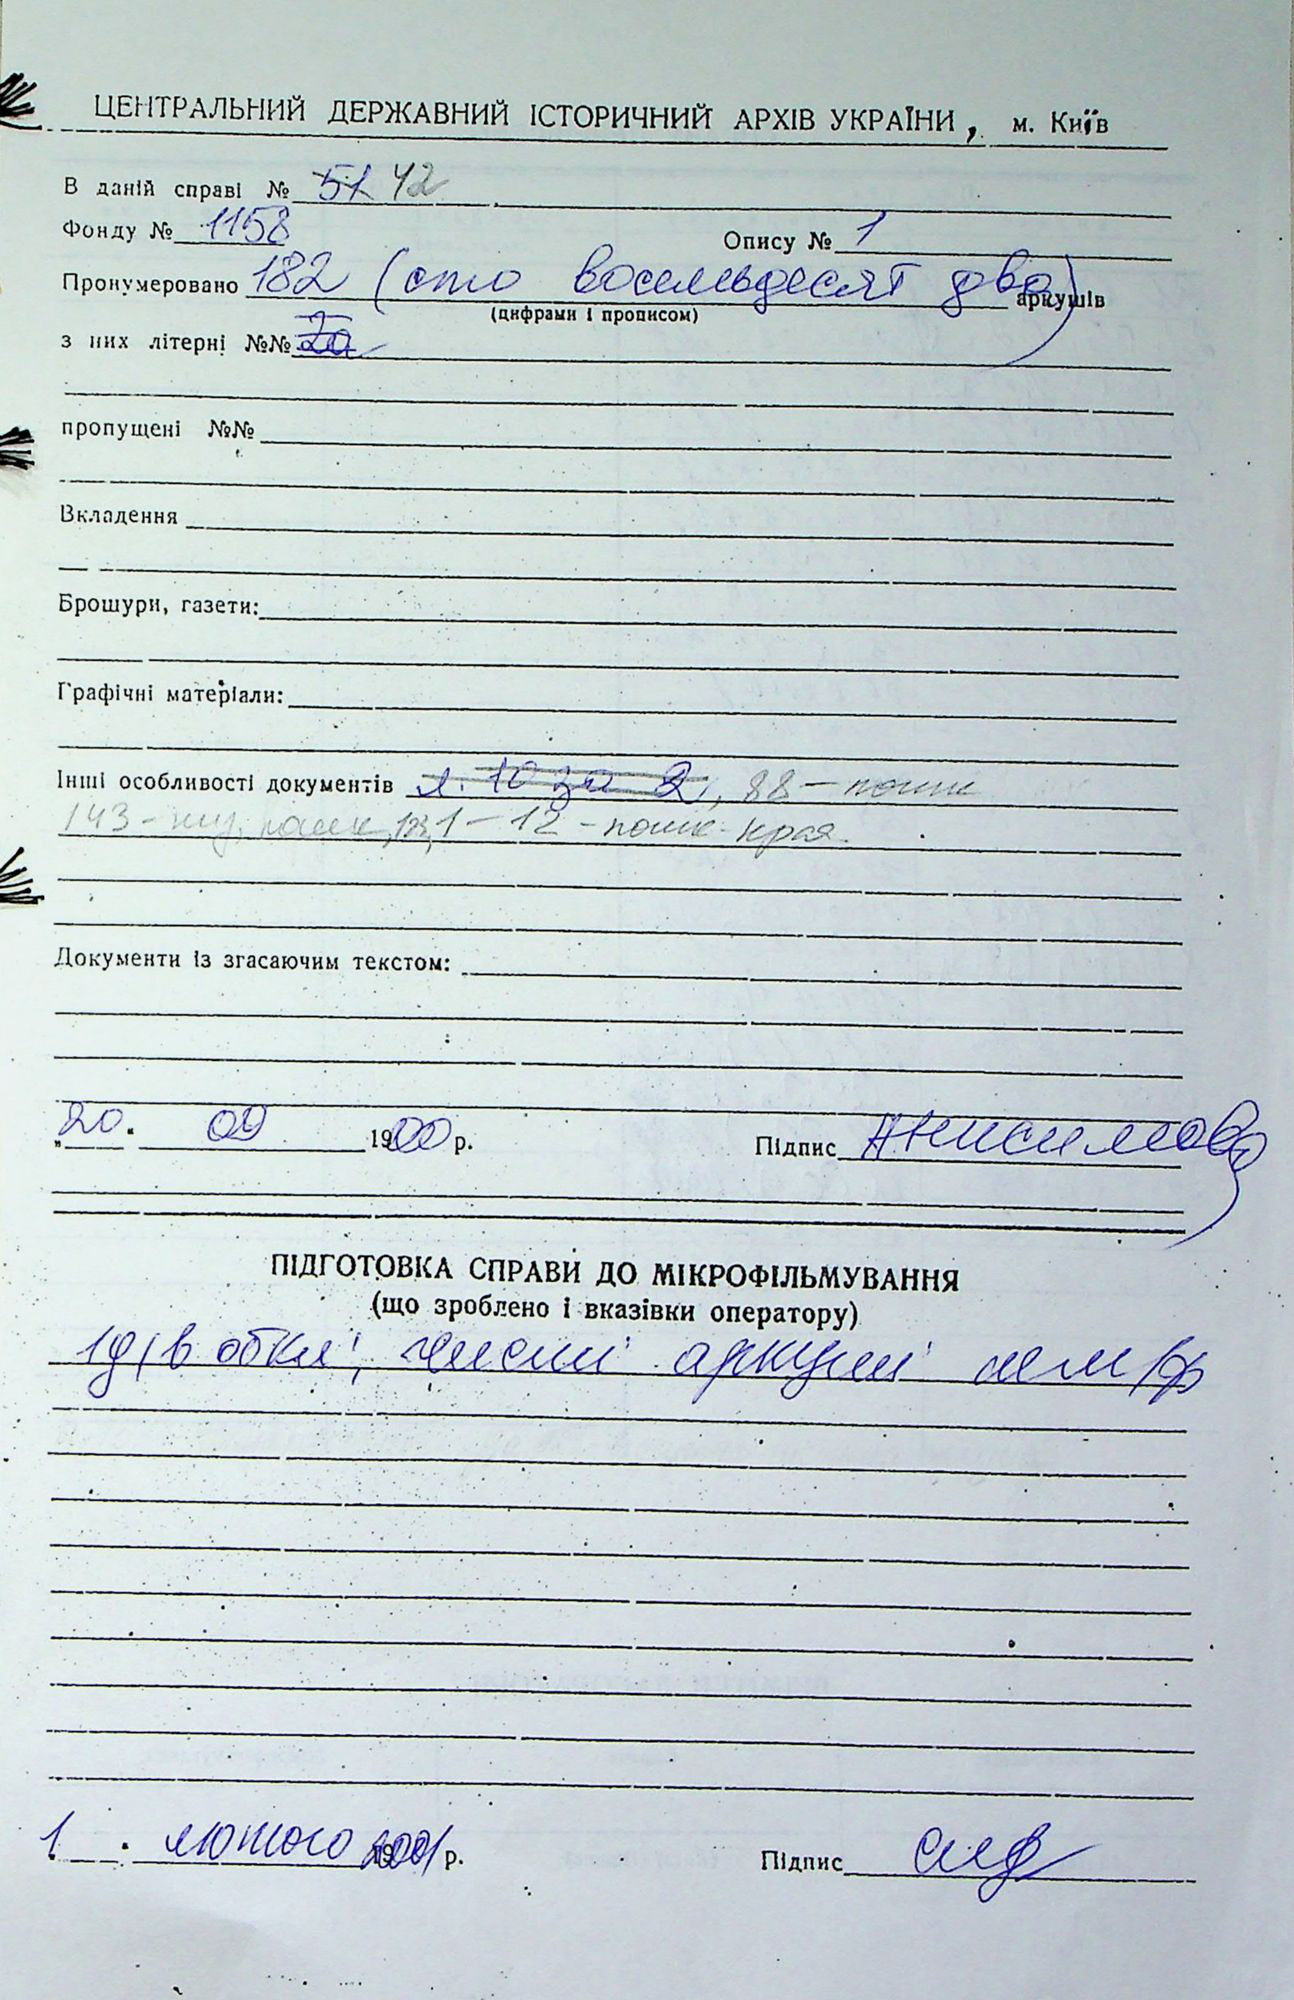 ЦЕНТРАЛЬНИЙ ДЕРЖАВНИЙ ІСТОРИЧНИЙ АРХІВ УКРАЇНИ, м. Київ
В даній справі № 51 42
Фонду № 1158 Опису № 1
Пронумеровано 182 (сто восемьдесят два) аркушів
(цифрами і прописом)
з них літерні №№ 2а
пропущені №№
Вкладення
Брошури, газети:
Графічні матеріали:
Інші особливості документів л. 10 за 2, 88 –
143 – 1 – 12 – края
Документи із згасаючим текстом:
„20“ 09 1900 р. Підпис Анисимова
ПІДГОТОВКА СПРАВИ ДО МІКРОФІЛЬМУВАННЯ
(що зроблено і вказівки оператору)
чисті аркуші не м/ф
1 лютого 2001 р. Підпис